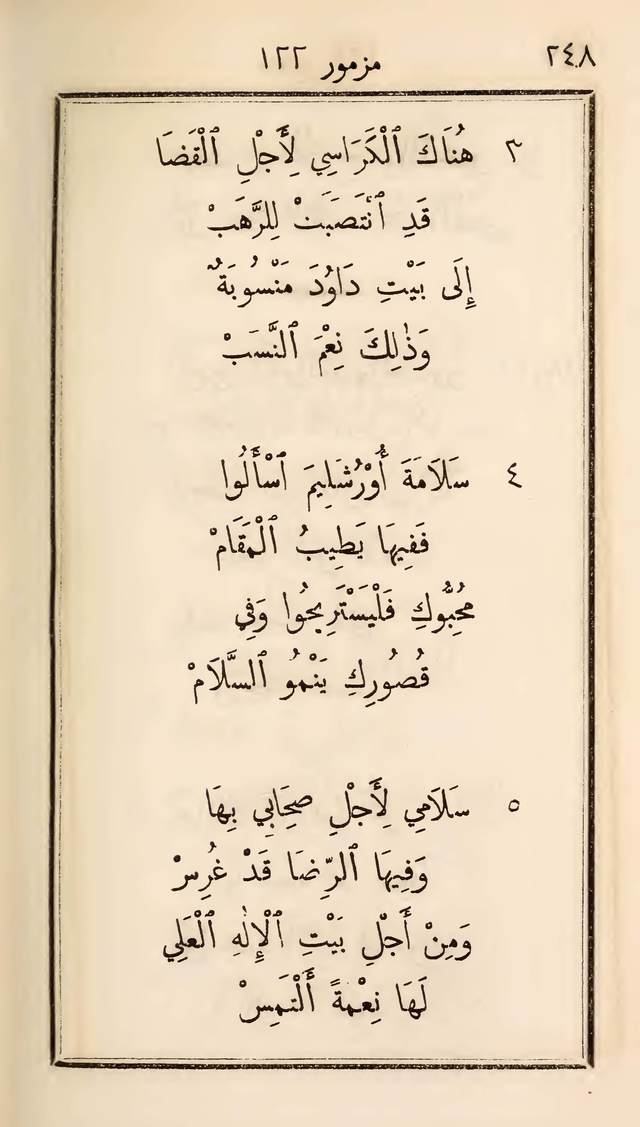 ٢٤٨ مزمور ١٢٢
٣ هُنَاكَ ٱلْكَرَاسِي لِأَجْلِ ٱلْقَضَا
قَدِ ٱنْتَصَبَتْ لِلرَّهَبْ
إِلَى بَيْتِ دَاوُدَ مَنْسُوبَةٌ
وَذٰلِكَ نِعْمَ ٱلنَّسَبْ
٤ سَلَامَةَ أُوْرُشَلِيمَ ٱسْأَلُوا
فَفِيهَا يَطِيبُ ٱلْمَقَامْ
مُحِبُّوكِ فَلْيَسْتَرِيحُوا وَفِي
قُصُورِكِ يَنْمُو ٱلسَّلَامْ
٥ سَلَامِي لِأَجْلِ صِحَابِي بِهَا
وَفِيهَا ٱلرِّضَا قَدْ غُرِسْ
وَمِنْ أَجْلِ بَيْتِ ٱلْإِلٰهِ ٱلْعَلِي
لَهَا نِعْمَةً أَلْتَمِسْ